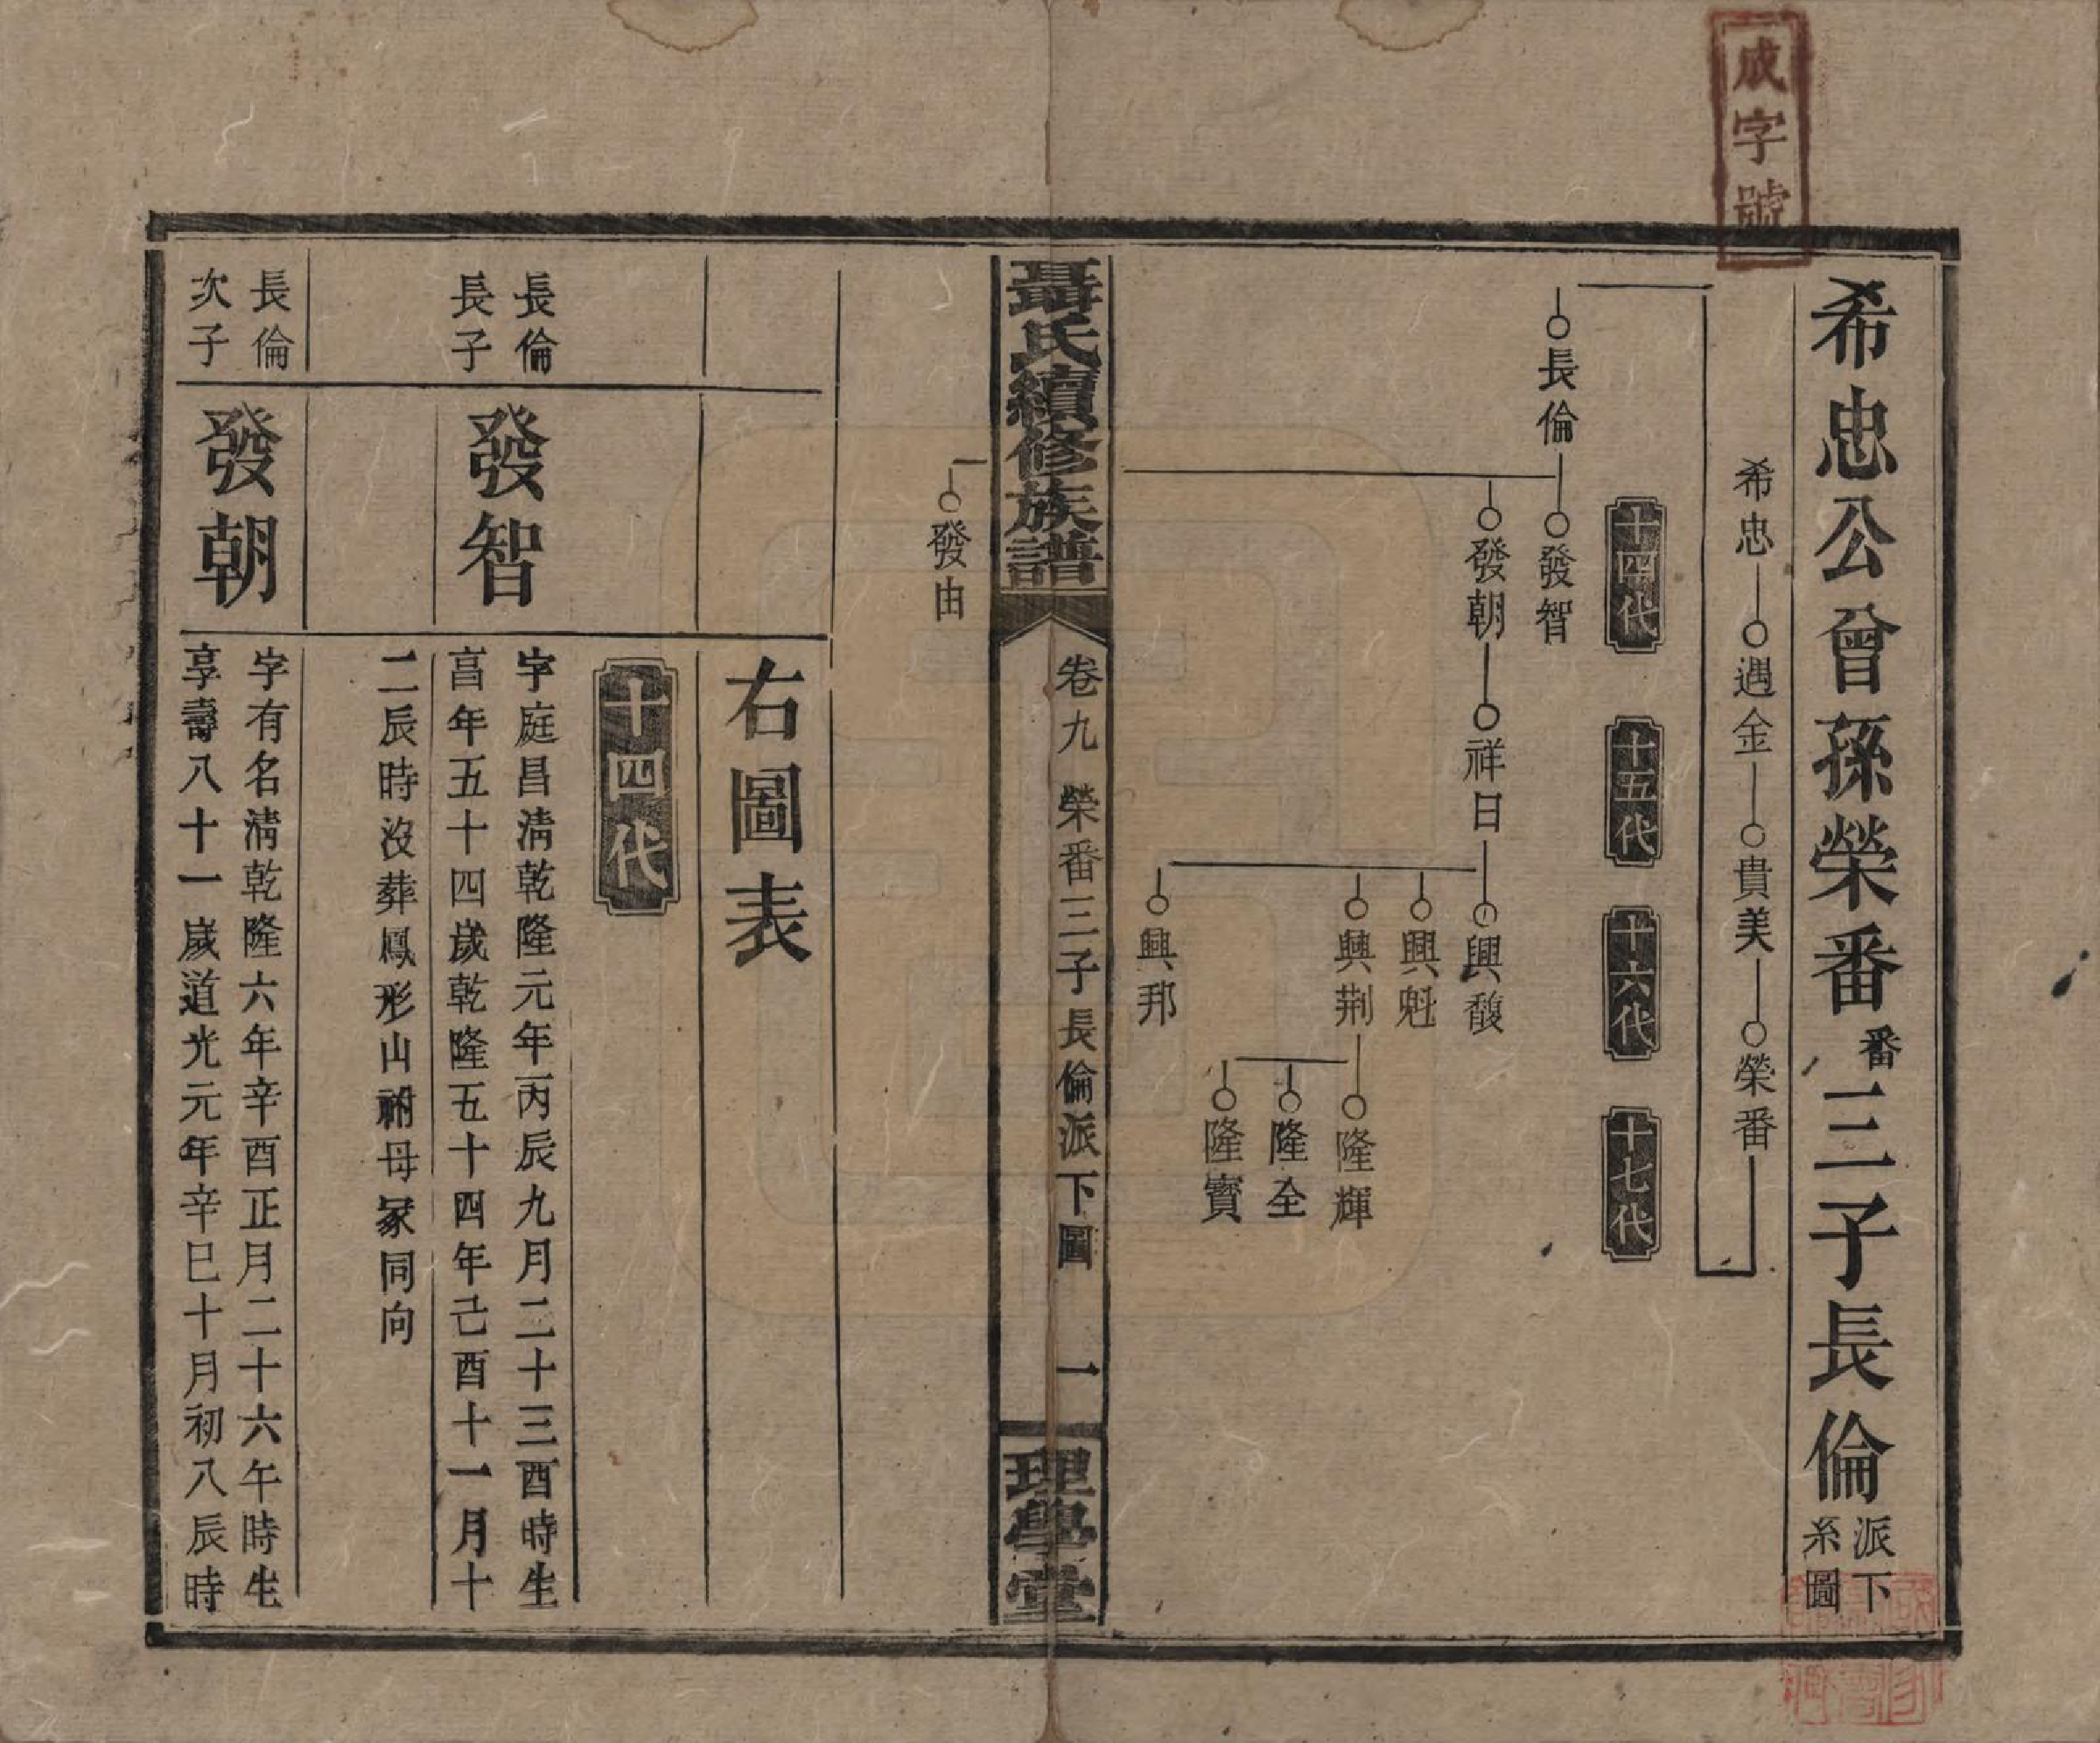 成字號
希忠公曾孫榮番番三子長倫派下系圖
希忠 遇金 貴美 榮番
十四代 十五代 十六代 十七代
長倫 發智
發朝 祥日 興馥
興魁
興荆 隆輝
隆全
隆寶
興邦
聶氏續修族譜 卷九 榮番三子長倫派下圖 一 理學堂
發由
右圖表
十四代
長倫長子
發智
字庭昌淸乾隆元年丙辰九月二十三酉時生
亯年五十四歲乾隆五十四年己酉十一月十
二辰時沒葬鳳形山祔母冢同向
長倫次子
發朝
字有名淸乾隆六年辛酉正月二十六午時生
享壽八十一歲道光元年辛巳十月初八辰時